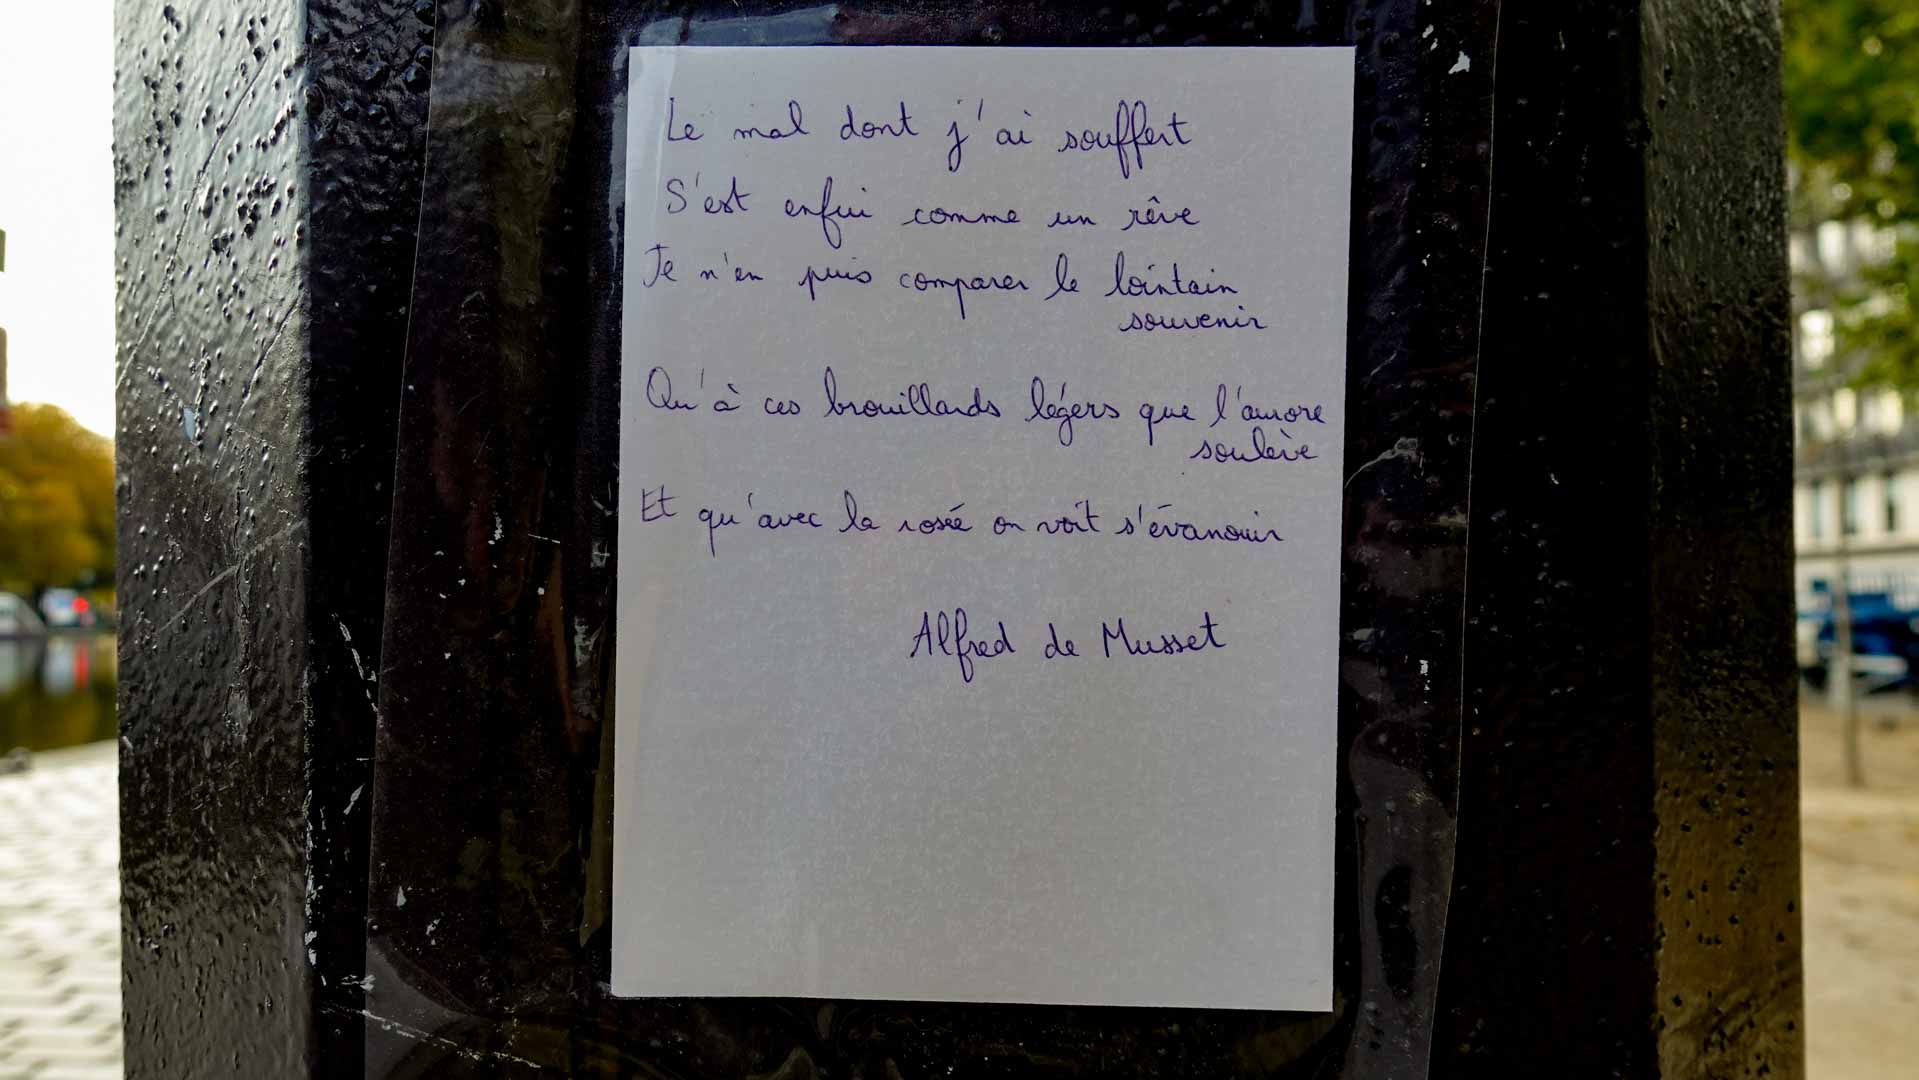 Le mal dont j'ai souffert
S'est enfui comme un rêve
Je n'en puis comparer le lointain
souvenir
Qu'à ces brouillards légers que l'aurore
soulève
Et qu'avec la rosée on voit s'évanouir
Alfred de Musset